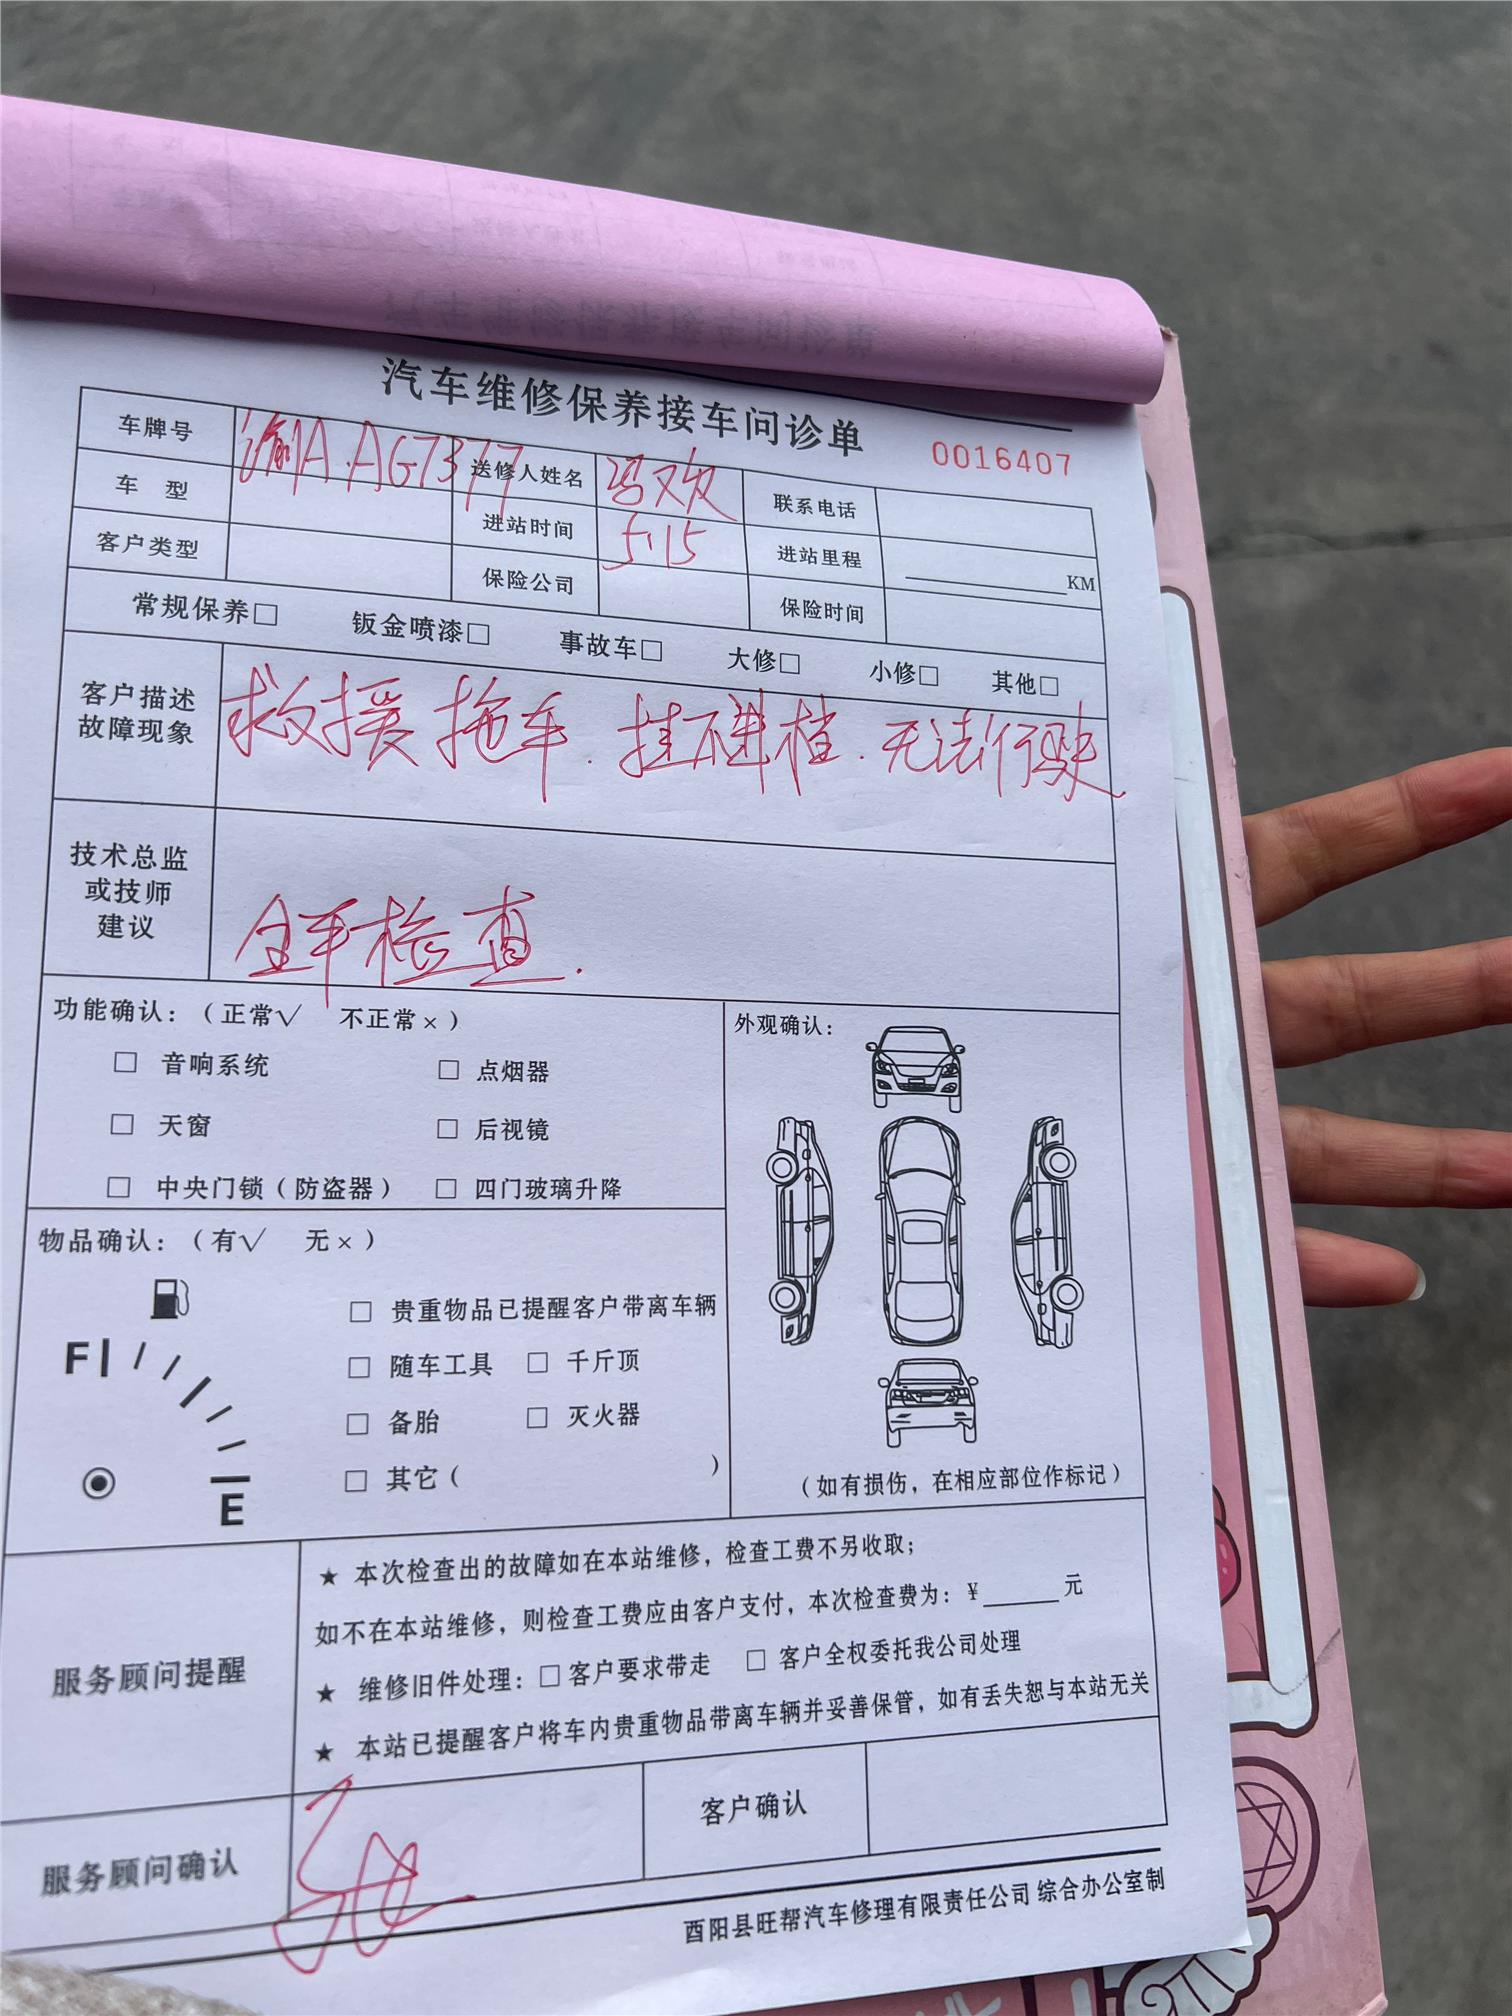 汽车维修保养接车问诊单
0016407
车牌号 渝A.AG7377 送修人姓名 冯欢 联系电话
车 型 进站时间 5.15 进站里程 KM
客户类型 保险公司 保险时间
常规保养□ 钣金喷漆□ 事故车□ 大修□ 小修□ 其他□
客户描述
故障现象
救援拖车.挂不进档.无法行驶
技术总监
或技师
建议
全车检查.
功能确认:(正常√ 不正常×)
□ 音响系统 □ 点烟器
□ 天窗 □ 后视镜
□ 中央门锁(防盗器) □ 四门玻璃升降
外观确认:
(如有损伤,在相应部位作标记)
物品确认:(有√ 无×)
F
E
□ 贵重物品已提醒客户带离车辆
□ 随车工具 □ 千斤顶
□ 备胎 □ 灭火器
□ 其它( )
服务顾问提醒
★ 本次检查出的故障如在本站维修,检查工费不另收取;
如不在本站维修,则检查工费应由客户支付,本次检查费为:¥______元
★ 维修旧件处理:□客户要求带走 □ 客户全权委托我公司处理
★ 本站已提醒客户将车内贵重物品带离车辆并妥善保管,如有丢失恕与本站无关
服务顾问确认 客户确认
酉阳县旺帮汽车修理有限责任公司 综合办公室制